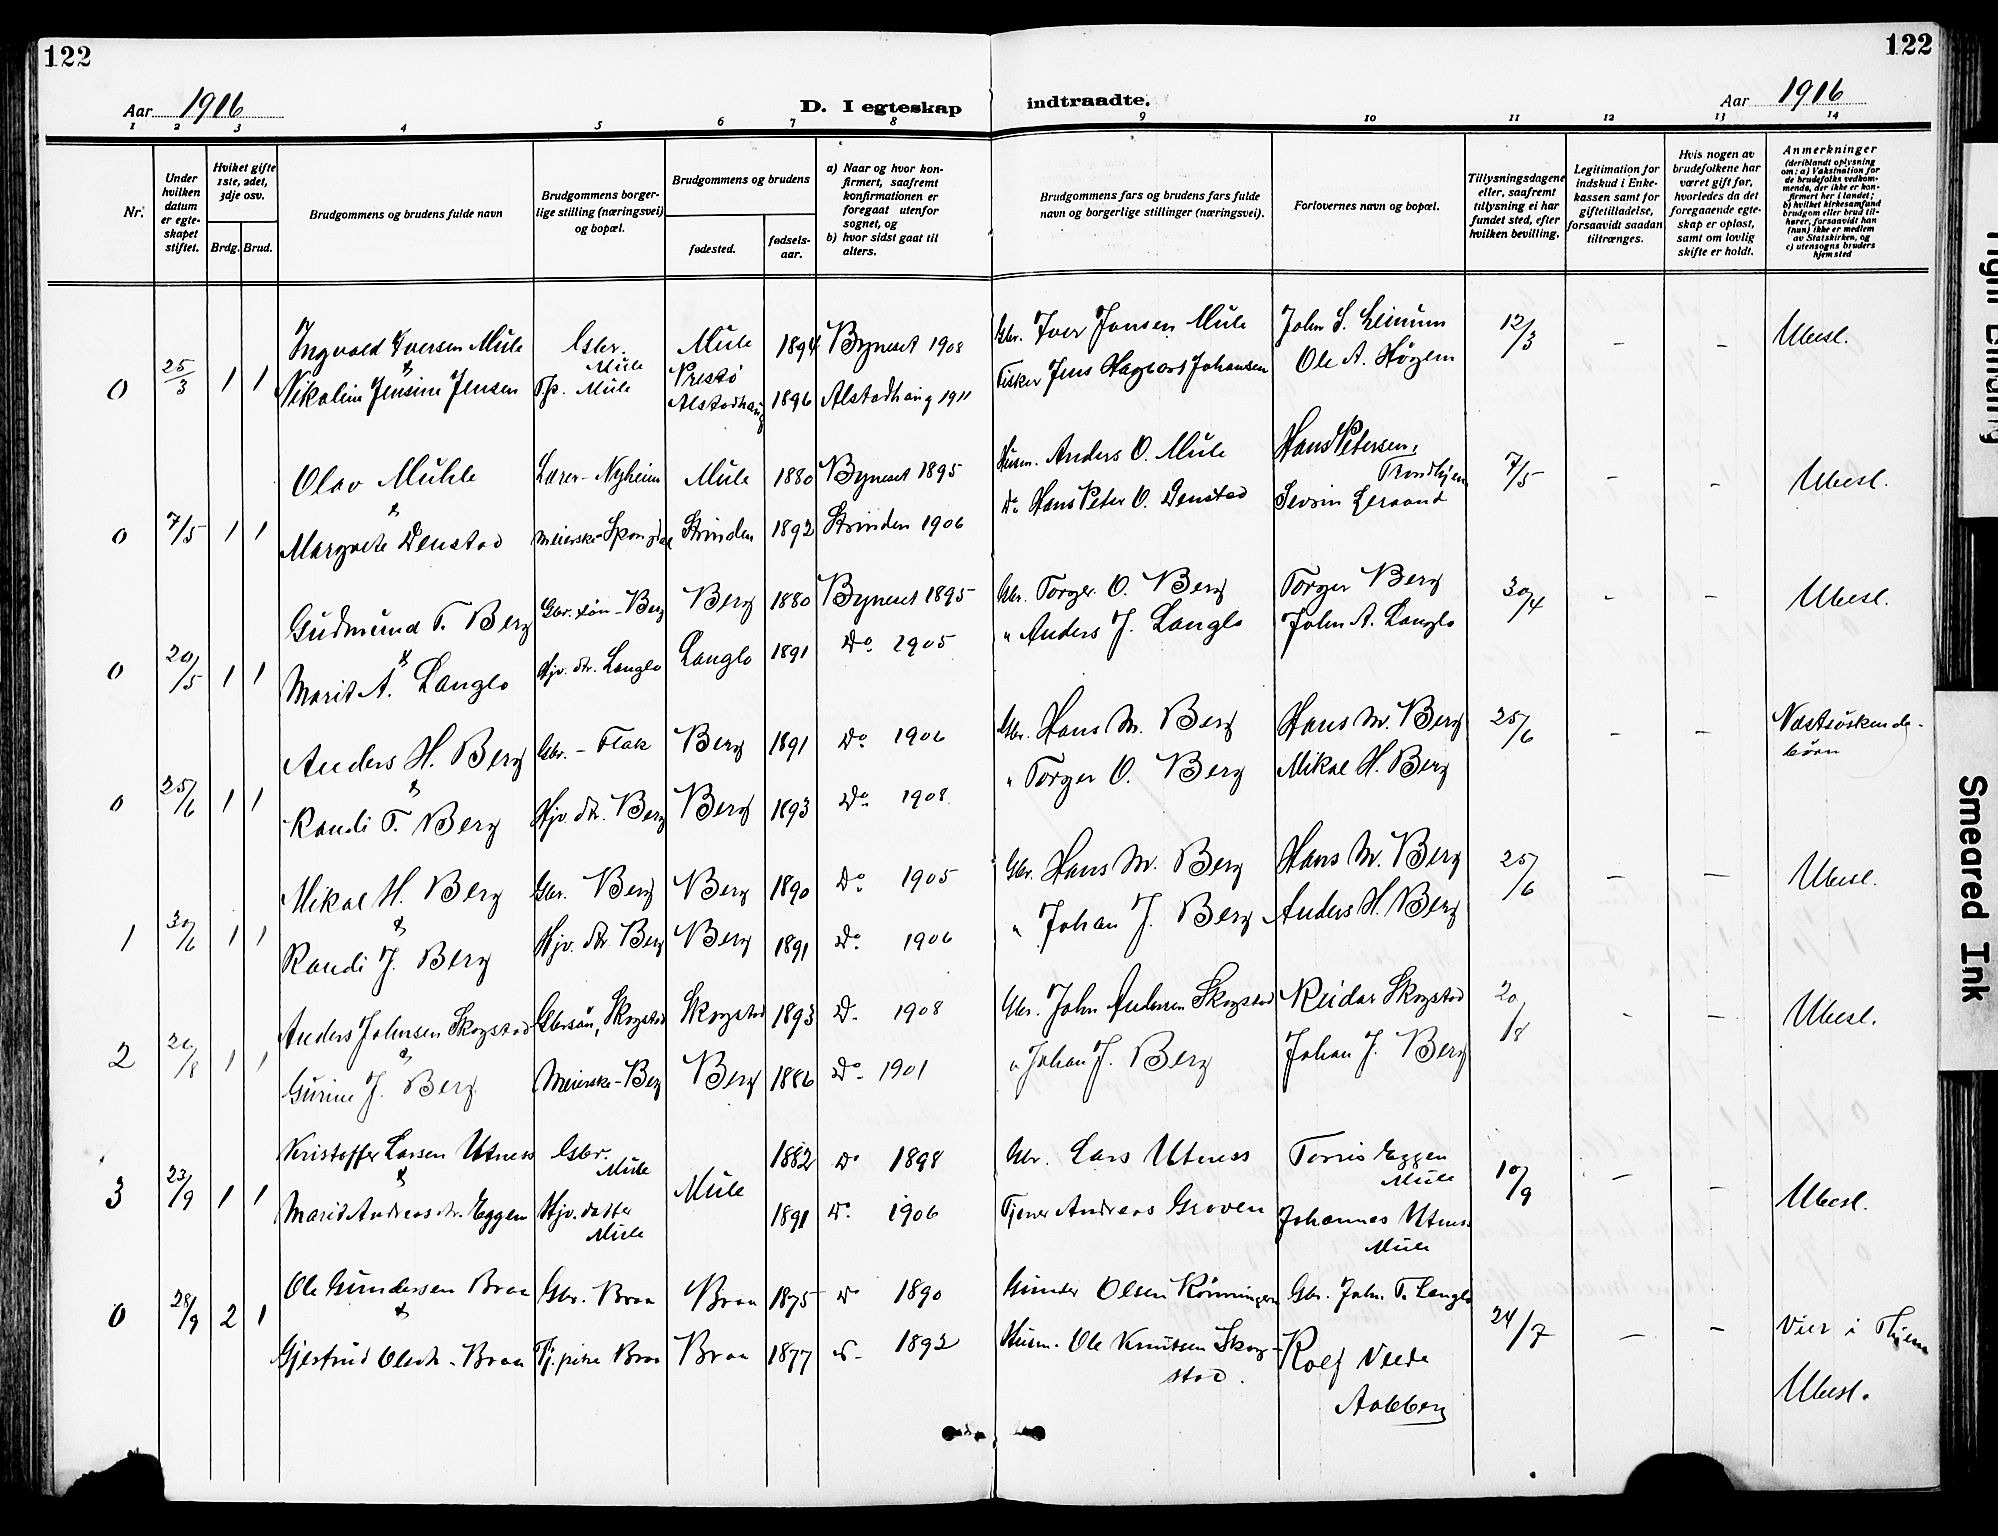 122
122
Aar 1916
D. I egteskap
indtraadte.
Aar 1916
1 2 3 4 5 6 7 8 9 10 11 12 13 14
Nr.
Under hvilken datum er egteskapet stiftet.
Hviket gifte 1ste, 2det, 3dje osv.
Brdg. Brud.
Brudgommens og brudens fulde navn
Brudgommens borgerlige stilling (næringsvei) og bopæl.
Brudgommens og brudens
fødested.
fødselsaar.
a) Naar og hvor konfirmert, saafremt konfirmationen er foregaat utenfor sognet, og
b) hvor sidst gaat til alters.
Brudgommens fars og brudens fars fulde navn og borgerlige stillinger (næringsvei).
Forlovernes navn og bopæl.
Tillysningsdagene eller, saafremt tillysning ei har fundet sted, efter hvilken bevilling.
Legitimation for indskud i Enkekassen samt for giftetilladelse, forsaavidt saadan tiltrænges.
Hvis nogen av brudefolkene har været gift før, hvorledes da det foregaaende egteskap er opløst, samt om lovlig skifte er holdt.
Anmerkninger (deriblandt oplysning om: a) Vaksination for de brudefolks vedkommende, der ikke er konfirmert her i landet; b) hvilket kirkesamfund brudgom eller brud tilhører, forsaavidt han (hun) ikke er medlem av Statskirken, og c) utensogns bruders hjemsted
Ingvald Iversen Mule Gbr. Mule Mule 1894 Byneset 1908 Gbr. Iver Jonsen Mule John S. Leinum 12/3 - - Ubesl.
0 25/3 1 1 &
Nikoline Jensine Jensen Tp. Mule Prestö Alstadhaug 1896 Alstadhaug 1911 Fisker Jens Hagbart Johansen Ole A. Høgem
Olav Muhle Lærer - Nyheim Mule 1880 Byneset 1895 Husm. Anders O. Mule Hans Petersen, Trondhjem 7/5 - - Ubesl.
0 7/5 1 1 &
Margrete Denstad Meierske - Spongdal Strinden 1892 Strinden 1906 Do Hans Peter O. Denstad
Gudmund T. Berg Gbr. søn - Berg Berg 1880 Byneset 1895 Gbr. Torger O. Berg Torger Berg 30/4 - - Ubesl.
0 20/5 1 1 &
Marit A. Langlo Hjv. dtr. Langlo Langlo 1891 Do. 1905 " Anders J. Langlo John A. Langlo
Anders H. Berg Gbr. - Flak Berg 1891 Do. 1906 Gbr. Hans M. Berg Hans M. Berg 25/6 - - Næstsöskendebörn
0 25/6 1 1 &
Randi T. Berg Hjv. dtr. Berg Berg 1893 Do. 1908 " Torger O. Berg Mikal H. Berg
Mikal H. Berg Gbr. Berg Berg 1890 Do. 1905 Gbr. Hans M. Berg Hans M. Berg 25/6 - - Ubesl.
1 30/6 1 1 &
Randi J. Berg Hjv. dtr Berg Berg 1891 Do. 1906 " Johan J. Berg Anders H. Berg
Anders Johnsen Skogstad Gbrsøn, Skogstad Skogstad 1893 D. 1908 Gbr. John Andersen Skogstad Reidar Skogstad 20/8 - - Ubesl.
2 26/8 1 1 &
Gurine J. Berg Meierske - Berg Berg 1886 Do. 1901 " Johan J. Berg Johan J. Berg
Kristoffer Larsen Utness Gbr. Mule Mule 1882 Do 1898 Gbr. Lars Utness Torris Eggen Mule 10/9 - - Ubesl.
3 23/9 1 1 &
Marit Andreasdtr. Eggen Hjv. datter Mule 1891 Do. 1906 Tjener Andreas Groven Johannes Utness Mule
Ole Gundersen Braa Gbr. Braa Braa 1875 Do 1890 Gunder Olsen Rönningen Gbr. John T. Langlo 24/7 - - Viet i Thjem
0 28/9 2 1 &
Gjertrud Olsdtr. - Braa Tj. pike Braa Braa 1877 1892 Husm. Ole Knutsen Skogstad. Rolf Aabberg Ubesl.
Tight Binding
Smeared Ink